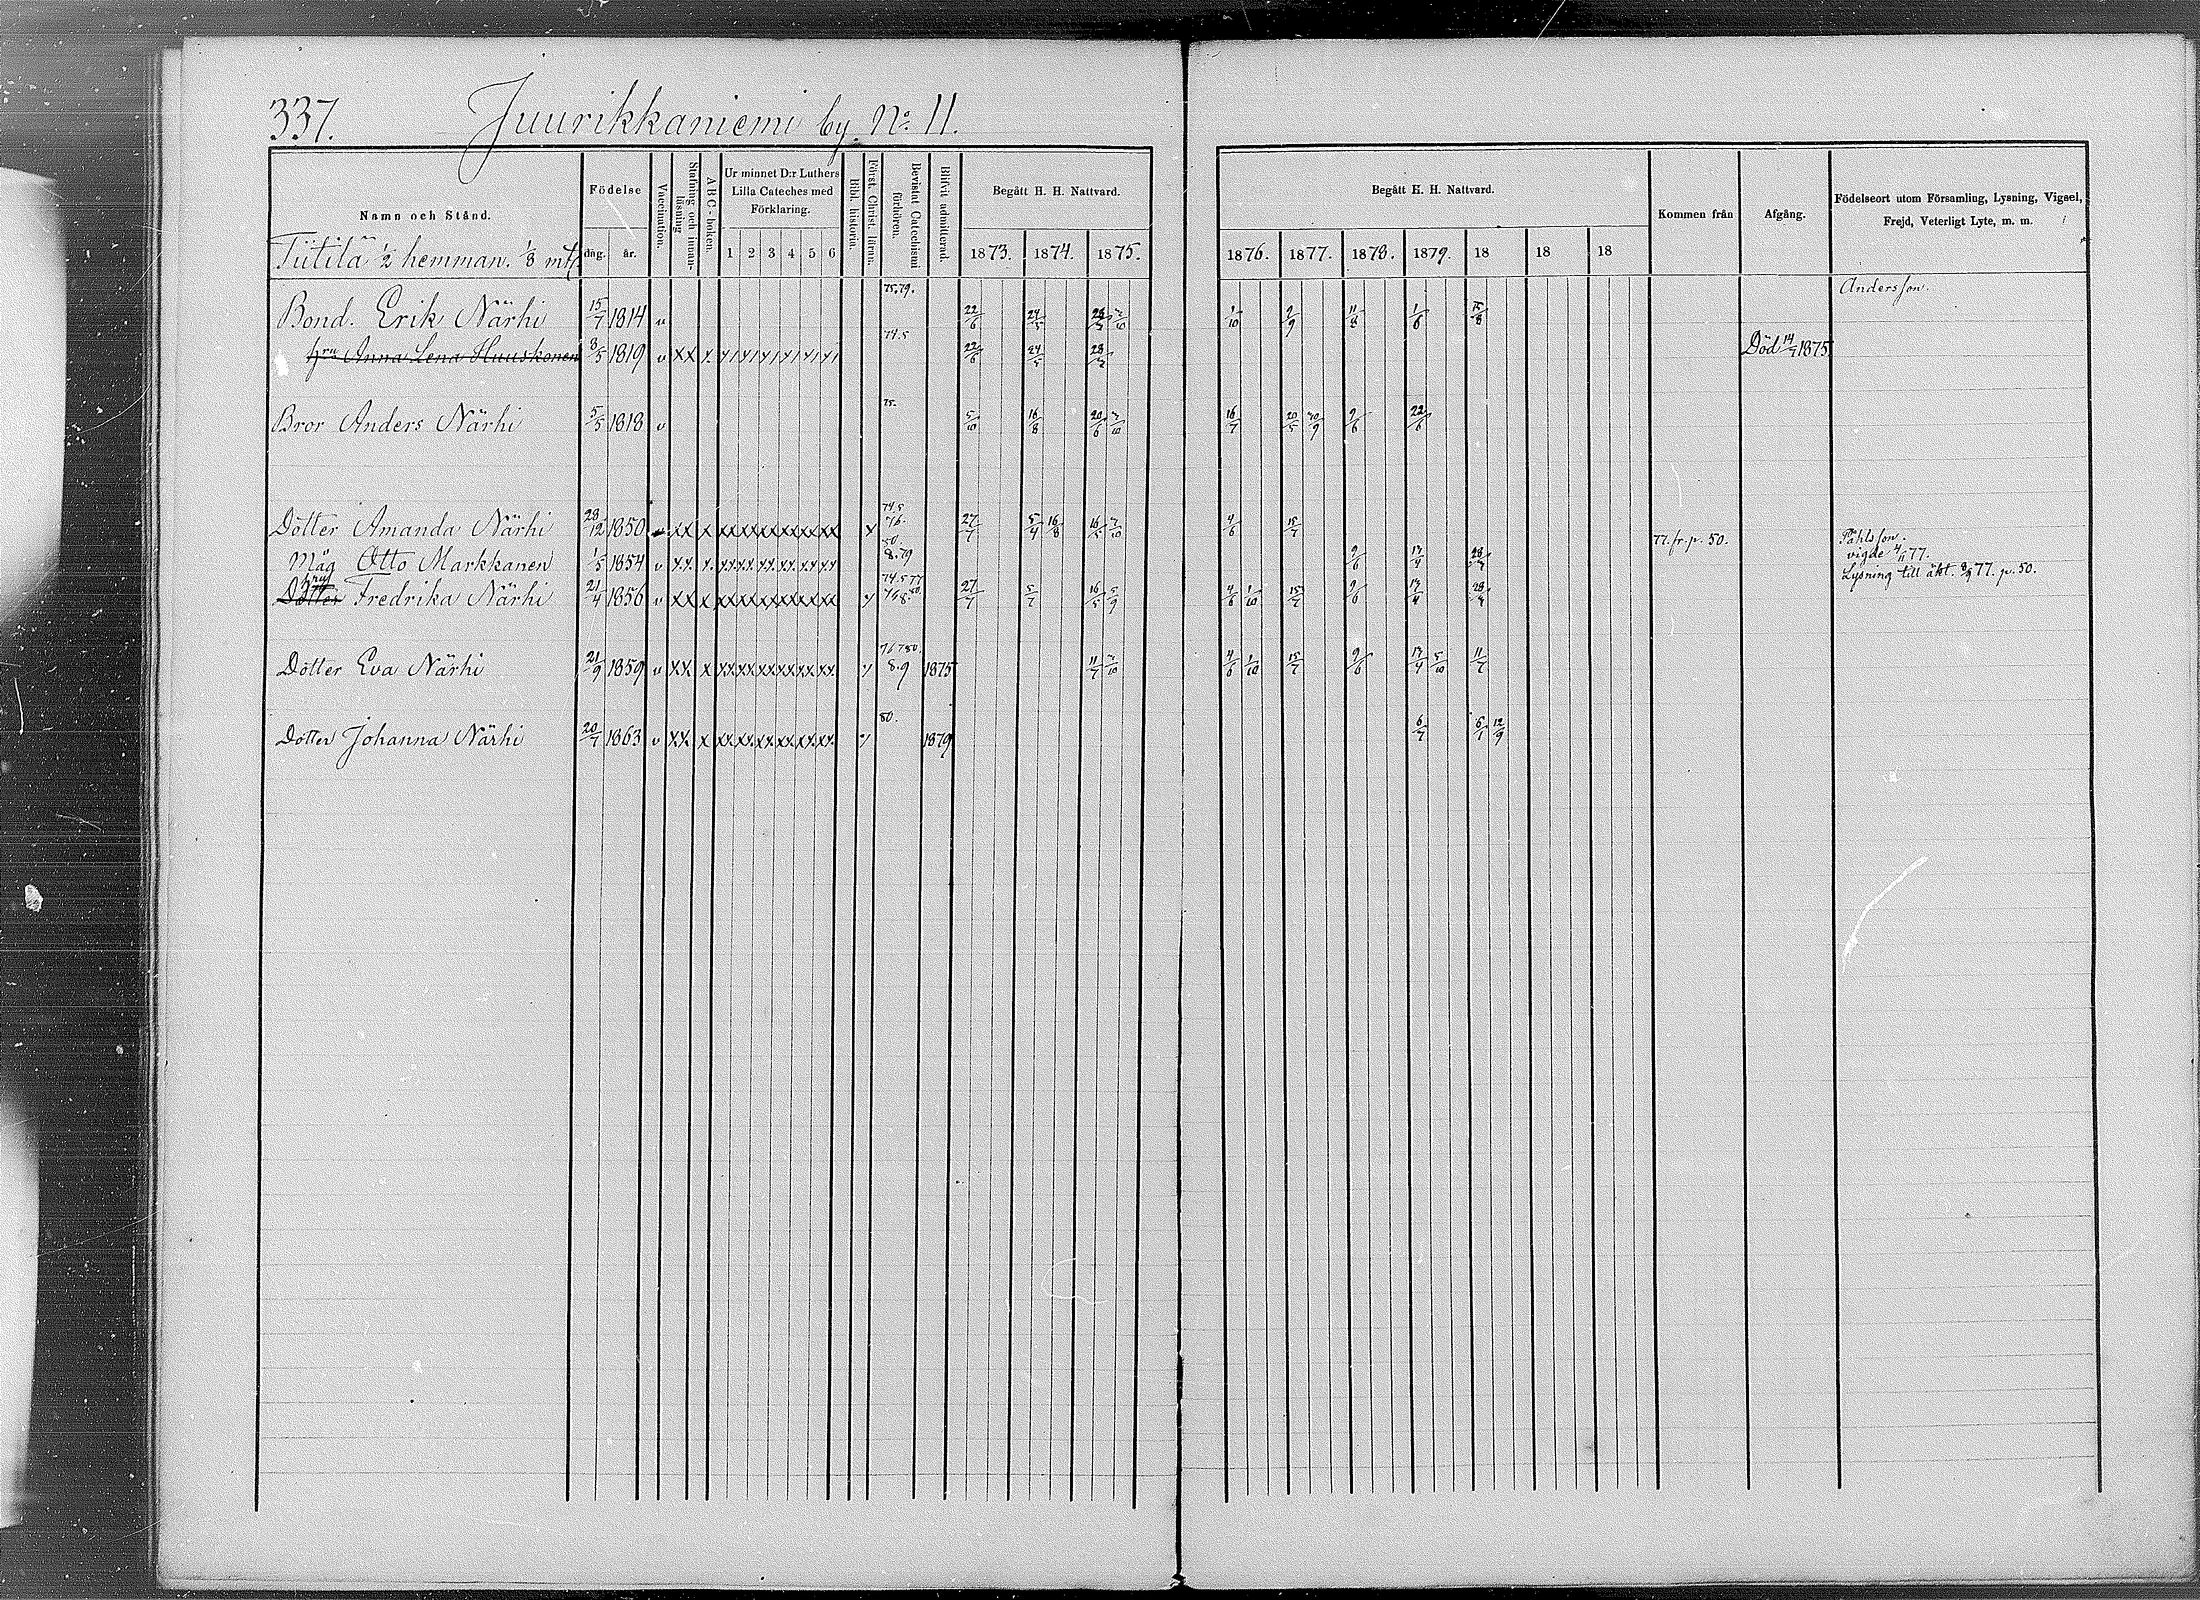 337. Juurikkaniemi by. No. 11.
Namn och Stånd.
Födelse
dag. år.
Vaccination.
Stafning och innanläsning
A B C-boken.
Ur minnet D:r Luthers Lilla Cateches med Förklaring.
1 2 3 4 5 6
Bibl. historia.
Först. Christ. läran.
Bevistat Catechismi förhören.
Blifvit admitterad.
Begått H. H. Nattvard.
1873. 1874. 1875.
Begått H. H. Nattvard.
1876. 1877. 1878. 1879. 18 18 18
Kommen från
Afgång.
Födelseort utom Församling, Lysning, Vigsel, Frejd, Veterligt Lyte, m. m.
Tiitilä 1/2 hemman. 1/8 mtl
Bond. Erik Närhi 15/7 1814 v 75.79. 22/6 24/5 1/10 2/9 11/8 1/6 15/8 Andersson.
hru Anna Lena Huuskonen 8/5 1819 v xx x 74.5 22/6 24/5 Död 14/7 1875
Bror Anders Närhi 5/5 1818 v 75. 5/10 16/8 20/6 16/7 20/5 30/9 9/6 22/6
Dotter Amanda Närhi 28/12 1850 xx x xx xx xx xx xx xx x 74.5 76. 27/7 5/4 16/8 16/5 4/6 15/7
Måg Otto Markkanen 1/5 1854 v xx. x. xx xx xx xx xx xx 80. 8.79 9/6 13/4 77. fr. p. 50. Påhlsson.
vigde 4/11 77.
Dotter hru Fredrika Närhi 21/4 1856 v xx x xx xx xx xx xx xx 74.5 77 27/7 5/7 16/5 5/9 4/6 1/10 15/7 9/6 13/4 Lysning till äkt. 8/9 77. p. 50.
Dotter Eva Närhi 21/9 1859 v xx x xx xx xx xx xx xx 76 7 80. 8.9 1875 11/7 4/6 1/10 15/7 9/6 13/4 5/10 11/7
Dotter Johanna Närhi 20/7 1863 v xx x xx xx xx xx xx xx 80. 1879 6/7 12/9